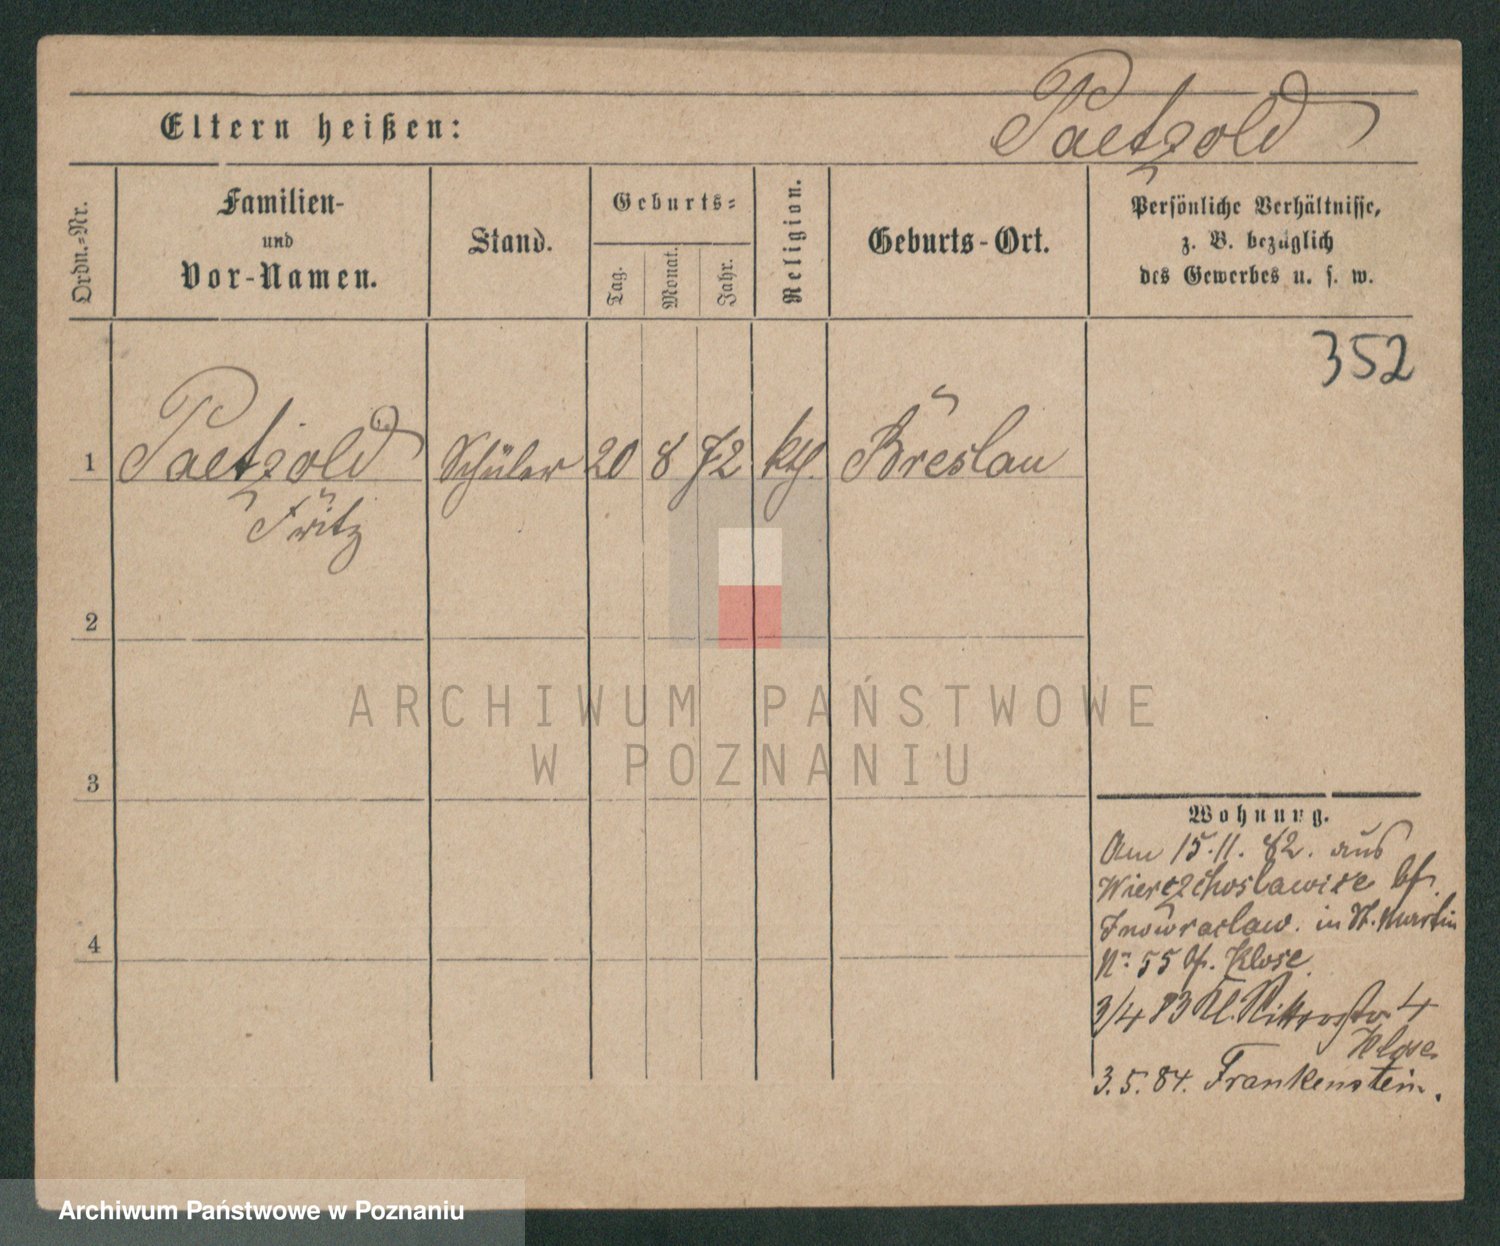 Paetzold
Eltern heißen:
Ordn.=Nr.
Familien-
und
Vor-Namen.
Stand.
Geburts=
Tag.
Monat.
Jahr.
Religion.
Geburts-Ort.
Persönliche Verhältnisse,
z. B. bezüglich
des Gewerbes u. s. w.
352
1 Paetzold Schüler 20 8 72 kth. Breslau
Fritz
2
3
4
ARCHIWUM PAŃSTWOWE
W POZNANIU
Wohnung.
Am 15.11.82. aus
Wierzchoslawice bf.
Inowraclaw. in St. Martin
No 55 bf. Klose.
3/4 83 Kl. Ritterstr 4
Klose
3.5.84. Frankenstein.
Archiwum Państwowe w Poznaniu